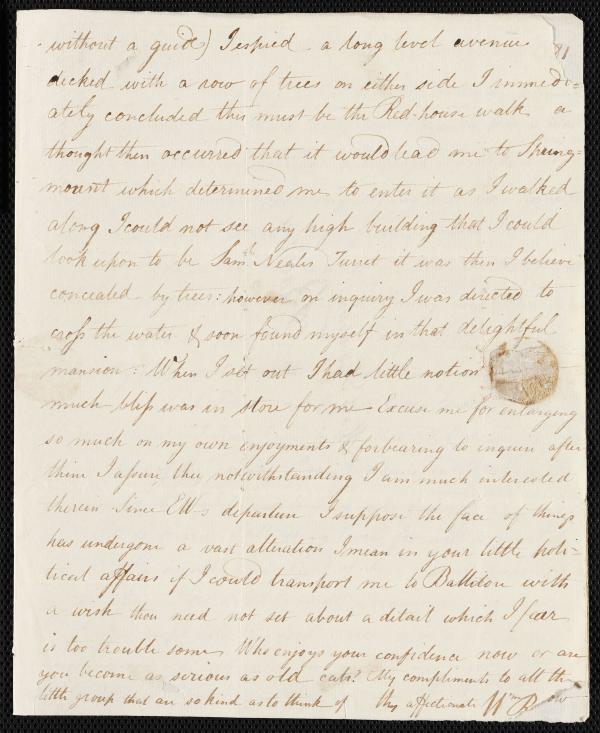 without a guid) I espied a long level avenue 81
decked with a row of trees on either side I immedi=
ately concluded this must be the Red-house walk a
thought then occurred that it would lead me to Spring=
mount which determined me to enter it as I walked
along I could not see any high building that I could
look upon to be Saml. Neales Turret it was then I believe
concealed by trees: however on inquiry I was directed to
cross the water & soon found myself in that delightful
mansion: When I set out I had little notion
much bliss was in store for me Excuse me for enlarging
so much on my own enjoyments & forbearing to inquire after
thine I assure thee notwithstanding I am much interested
therein Since EW-s departure I suppose the face of things
has undergone a vast alteration I mean in your little poli-
tical affairs if I could transport me to Ballitore with
a wish thou need not set about a detail which I fear
is too trouble some Who enjoys your confidence now or are
you become as serious as old cats? My compliments to all the
little group that are so kind as to think of thy affectionate Wm